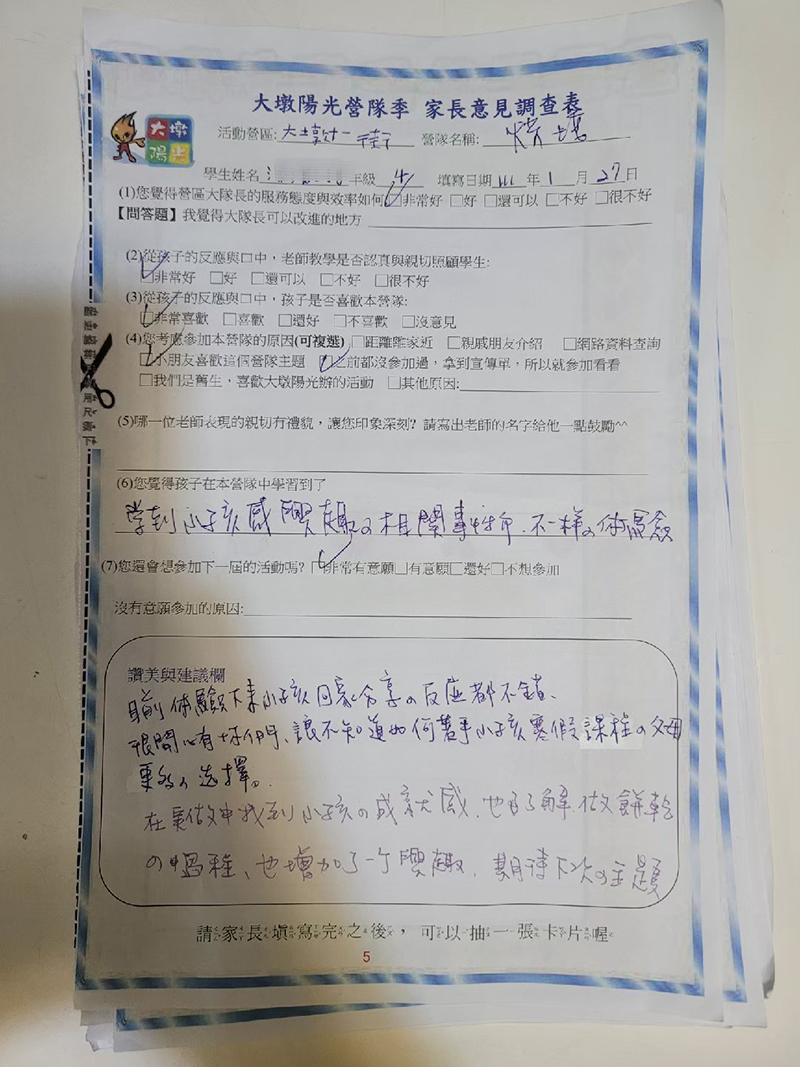 大墩陽光營隊季 家長意見調查表
大墩陽光
活動營區: 大墩十一街 營隊名稱: 烘培
學生姓名 年級 4 填寫日期 111 年 1 月 27 日
(1)您覺得營區大隊長的服務態度與效率如何 ☑非常好 □好 □還可以 □不好 □很不好
【問答題】我覺得大隊長可以改進的地方
(2)從孩子的反應與口中，老師教學是否認真與親切照顧學生:
☑非常好 □好 □還可以 □不好 □很不好
(3)從孩子的反應與口中，孩子是否喜歡本營隊:
☑非常喜歡 □喜歡 □還好 □不喜歡 □沒意見
(4)您考慮參加本營隊的原因(可複選) □距離離家近 □親戚朋友介紹 □網路資料查詢
☑小朋友喜歡這個營隊主題 ☑之前都沒參加過，拿到宣傳單，所以就參加看看
□我們是舊生，喜歡大墩陽光辦的活動 □其他原因:
(5)哪一位老師表現的親切有禮貌，讓您印象深刻? 請寫出老師的名字給他一點鼓勵^^
(6)您覺得孩子在本營隊中學習到了
學到小孩感興趣の相關事件、不一樣の体驗
(7)您還會想參加下一屆的活動嗎? ☑非常有意願 □有意願 □還好 □不想參加
沒有意願參加的原因:
讚美與建議欄
目前体驗下來小孩回家分享の反應都不錯、
很開心有你們、讓不知道如何著手小孩寒假課程の父母
更多の選擇。
在實做中找到小孩の成就感、也了解做餅乾
の過程、也增加了一個興趣、期待下次の主題
請家長填寫完之後，可以抽一張卡片喔
5